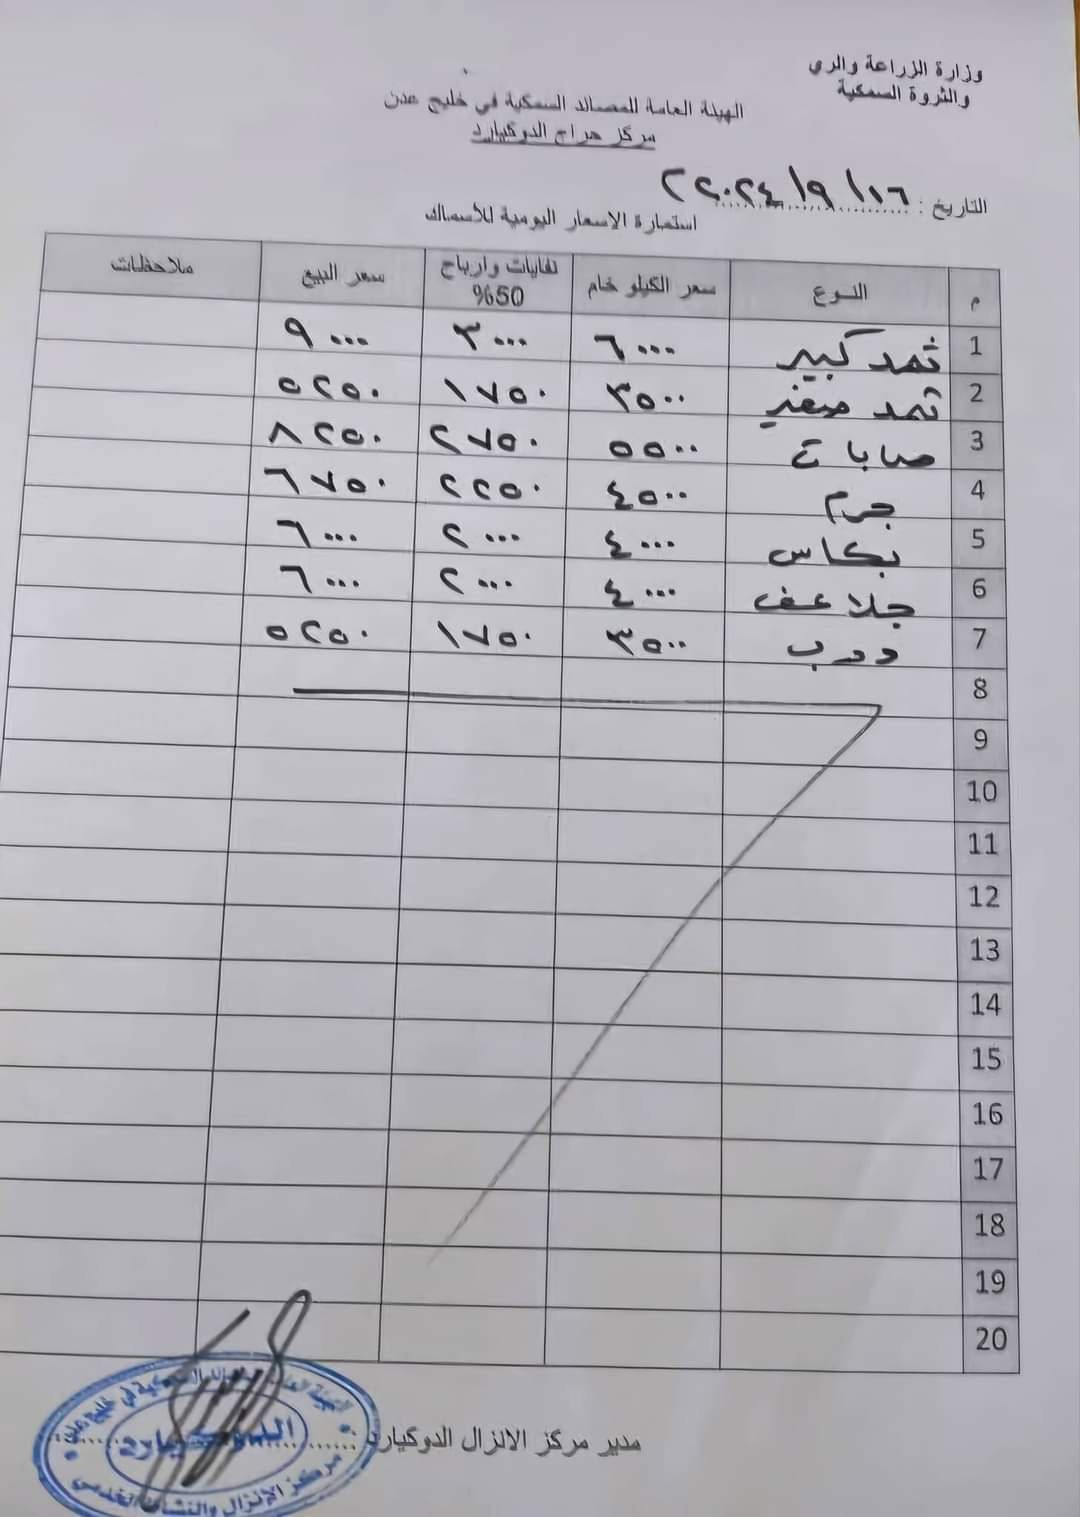 وزارة الزراعة والري
والثروة السمكية
الهيئة العامة للمصائد السمكية في خليج عدن
مركز حراج الدوكيارد
التاريخ : ١٦ / ٩ / ٢٠٢٤
استمارة الاسعار اليومية للأسماك
م النوع سعر الكيلو خام نفايات وارباح 50% سعر البيع ملاحظات
1 ثمد كبير ٦٠٠٠ ٣٠٠٠ ٩٠٠٠
2 ثمد صغير ٣٥٠٠ ١٧٥٠ ٥٢٥٠
3 ٥٥٠٠ ٢٧٥٠ ٨٢٥٠
4 جرم ٤٥٠٠ ٢٢٥٠ ٦٧٥٠
5 بكاس ٤٠٠٠ ٢٠٠٠ ٦٠٠٠
6 جلاعف ٤٠٠٠ ٢٠٠٠ ٦٠٠٠
7 درب ٣٥٠٠ ١٧٥٠ ٥٢٥٠
8
9
10
11
12
13
14
15
16
17
18
19
20
مدير مركز الانزال الدوكيارد
الدوكيارد
مركز الإنزال والنشاط الخدمي